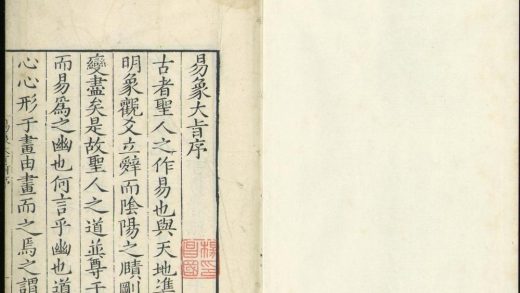 易象大旨序
古者聖人之作易也與天地準
明象觀爻立辭而陰陽之賾剛
變盡矣是故聖人之道並尊于
而易爲之幽也何言乎幽也道
心心形于畫由畫而之焉之謂